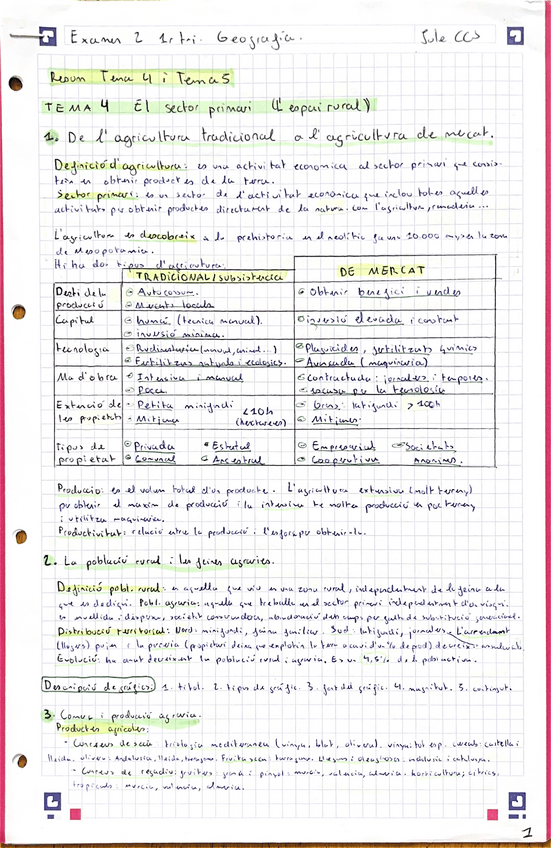 Examen 2 1r tri. Geografia. Jule CCS
Resum Tema 4 i Tema 5
TEMA 4 El sector primari (L'espai rural)
1. De l'agricultura tradicional a l'agricultura de mercat.
Definició d'agricultura: es una activitat economica al sector primari que consis-
teix en obtenir productes de la terra.
Sector primari: es un sector de l'activitat econòmica que inclou totes aquelles
activitats per obtenir productes directament de la natura. com l'agricultura, ramaderia...
L'agricultura es descobreix a la prehistoria en el neolític fa uns 10.000 anys a la zona
de Mesopotamia.
Hi ha dos tipus d'agricultura:
TRADICIONAL/subsistència DE MERCAT
Destí de la producció Autoconsum. Mercats locals Obtenir benefici i vendes
Capital humà (tecnica manual). inversió mínima. inversió elevada i constant
tecnologia Rudimentaria (manual, animal...) Fertilitzants naturals i ecologics. Plaguicides, fertilitzants químics Avançada (maquinaria)
Ma d'obra Intensiva i manual Poca Contractada: jornalers i temporers. escassa per la tecnologia
Extenció de les propietats Petita minifundi Mitjana <10h (hectarees) Grans: latifundi >100h Mitjanes
Tipus de propietat Privada Estatal Comunal Ancestral Empresarial Societats Cooperativa Anonimes.
Producció: es el volum total d'un producte. L'agricultura extensiva (molt terreny)
per obtenir el maxim de producció i la intensiva te molta producció en poc terreny
i utilitza maquinaria.
Productivitat: relació entre la producció i l'esforç per obtenir-la.
2. La població rural i les feines agraries.
Definició pobl. rural: es aquella que viu en una zona rural, independentment de la feina a la
que es dediqui. Pobl. agraria: aquella que treballa en el sector primari independentment d'on visqui.
es envellida i dispersa, societat conservadora, abandonació dels camps per falta de substitució generacional.
Distribució territorial: Nord: minifundi, feina familiar. Sud: latifundi, jornalers. L'arrendament
(lloguer) pujen i la parceria (propietari deixa que explotin la terra a canvi d'un % de prod) decreix
Evolució: ha anat decreixent la població rural i agraria. Es un 4,5% de la pobl activa.
Descripció de gràfics: 1. titol. 2. tipus de gràfic. 3. font del gràfic. 4. magnitut. 5. contingut.
3. Conreu i producció agraria.
Productes agricoles:
- Conreus de secà: trilogia mediterranea (vinya, blat, olivera). vinya: tot esp. cereals: castella i
lleida. olives: Andalusia, lleida, tarragona. Fruita seca: tarragona. Llegums i oleaginoses: andalusia i catalunya.
- Conreus de regadiu: fruiters: poma i pinyol: murcia, valencia, almeria. horticultura; citrics,
tropicals: murcia, valencia, almeria.
1